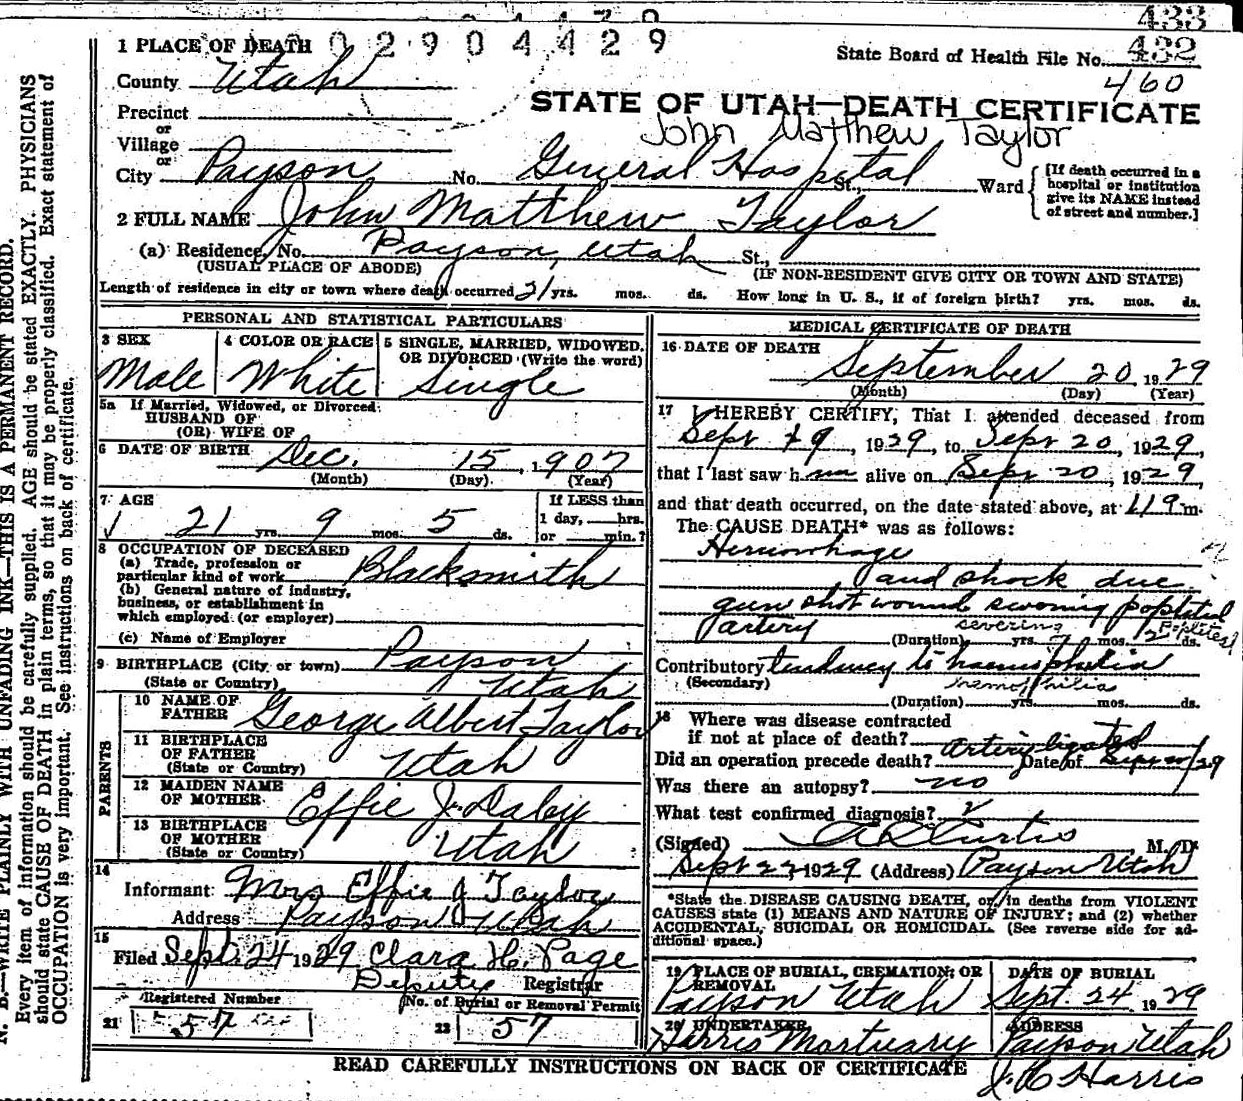 433
2 9 0 4 4 2 9
State Board of Health File No. 432
460
1 PLACE OF DEATH
County Utah
STATE OF UTAH—DEATH CERTIFICATE
Precinct
or
John Matthew Taylor
Village
or
City Payson No. General Hospital St., Ward
[If death occurred in a hospital or institution give its NAME instead of street and number.]
2 FULL NAME John Matthew Taylor
(a) Residence, No. Payson, Utah St.,
(USUAL PLACE OF ABODE) (IF NON-RESIDENT GIVE CITY OR TOWN AND STATE)
Length of residence in city or town where death occurred 21 yrs. mos. ds. How long in U. S., if of foreign birth? yrs. mos. ds.
PERSONAL AND STATISTICAL PARTICULARS
3 SEX Male
4 COLOR OR RACE White
5 SINGLE, MARRIED, WIDOWED, OR DIVORCED (Write the word) Single
5a If Married, Widowed, or Divorced
HUSBAND OF
(OR) WIFE OF
6 DATE OF BIRTH Dec. 15, 1907
(Month) (Day) (Year)
7 AGE
21 yrs. 9 mos. 5 ds.
If LESS than
1 day, hrs.
or min.?
8 OCCUPATION OF DECEASED
(a) Trade, profession or
particular kind of work Blacksmith
(b) General nature of industry,
business, or establishment in
which employed (or employer)
(c) Name of Employer
9 BIRTHPLACE (City or town) Payson
(State or Country) Utah
PARENTS
10 NAME OF FATHER George Albert Taylor
11 BIRTHPLACE OF FATHER (State or Country) Utah
12 MAIDEN NAME OF MOTHER Effie J. Daley
13 BIRTHPLACE OF MOTHER (State or Country) Utah
14
Informant: Mrs Effie J Taylor
Address Payson Utah
15
Filed Sept. 24 1929 Clara H. Page
Deputy Registrar
Registered Number
21 57
No. of Burial or Removal Permit
22 57
MEDICAL CERTIFICATE OF DEATH
16 DATE OF DEATH
September 20, 1929
(Month) (Day) (Year)
17 I HEREBY CERTIFY, That I attended deceased from
Sept 19, 1929, to Sept 20, 1929,
that I last saw him alive on Sept 20, 1929,
and that death occurred, on the date stated above, at m.
The CAUSE DEATH* was as follows:
Hemorrhage
and shock due
gun shot wound severing popliteal
severing Popliteal
artery (Duration) yrs. mos. ds.
Contributory tendency to haemophilia
(Secondary) hemophilia
(Duration) yrs. mos. ds.
18 Where was disease contracted
if not at place of death?
artery ligated
Did an operation precede death? Date of Sept 20/29
Was there an autopsy? no
What test confirmed diagnosis?
(Signed) A L Curtis, M. D.
Sept 23 1929 (Address) Payson Utah
*State the DISEASE CAUSING DEATH, or, in deaths from VIOLENT
CAUSES state (1) MEANS AND NATURE OF INJURY; and (2) whether
ACCIDENTAL, SUICIDAL OR HOMICIDAL. (See reverse side for ad-
ditional space.)
19 PLACE OF BURIAL, CREMATION, OR REMOVAL
Payson Utah
DATE OF BURIAL
Sept. 24 1929
20 UNDERTAKER
Harris Mortuary
ADDRESS
Payson Utah
J. C. Harris
READ CAREFULLY INSTRUCTIONS ON BACK OF CERTIFICATE
N. B.—WRITE PLAINLY WITH UNFADING INK—THIS IS A PERMANENT RECORD.
Every item of information should be carefully supplied. AGE should be stated EXACTLY. PHYSICIANS
should state CAUSE OF DEATH in plain terms, so that it may be properly classified. Exact statement of
OCCUPATION is very important. See instructions on back of certificate.